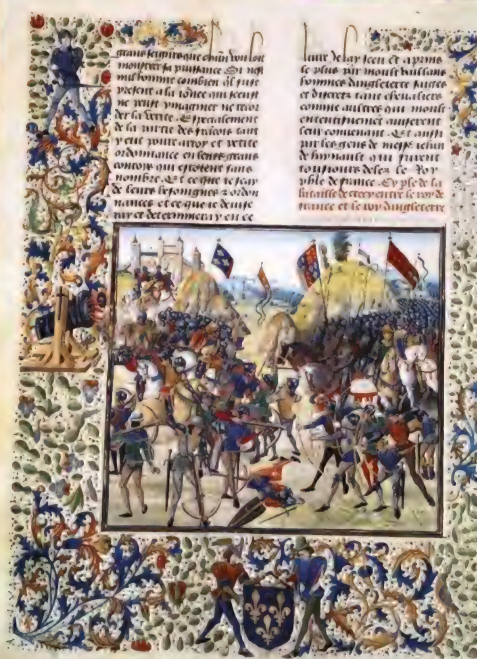 grans seigneurs que chun vouloit
monstrer sa puissance Si nest
nul homme combien il fust
present a la Jornee qui sceust
ne peust ymaginer ne recor
der la verite. Especialement
de la partie des francois tant
y eut pour arroy et petite
ordonnance en leurs grans
conrois qui estoient sans
nombre. Et ce que Je scay
de leurs besongnes
nances et ce que Je deuise
ray et determineray en ce
liure Je lay sceu et aprins
le plus par moult vaillans
hommes dangleterre sages
et discretz tant cheualiers
comme aultres qui moult
ententiuement auiserent
leur conuenant. Et aussi
par les gens de messe Jehan
de haynault qui furent
tousiours delez le Roy
phle de france. Cy ple de la
bataille de crecy entre le roy de
france et le roy dangleterre